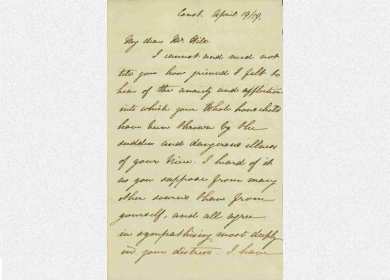 April 19/79.
My dear Mr.
I cannot and need not
tell you how grieved I felt to
hear of the anxiety and affliction
into which your whole household
have been thrown by the
sudden and dangerous illness
of your Niece. I heard of it
as you suppose from many
other sources than from
yourself, and all agree
in sympathising most deeply
in your distress. I have